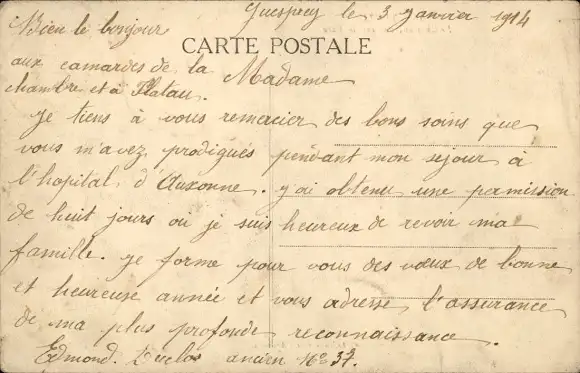 le 3 Janvier 1914
Bien le bonjour
CARTE POSTALE
aux camardes de la
Madame
chambre et à Platau.
Je tiens à vous remercier des bons soins que
vous m'avez prodigués pendant mon séjour à
l'hopital d'Auxonne. j'ai obtenu une permission
de huit jours où je suis heureux de revoir ma
famille. je forme pour vous des vœux de bonne
et heureuse année et vous adresse l'assurance
de ma plus profonde reconnaissance.
Edmond. ancien 37.